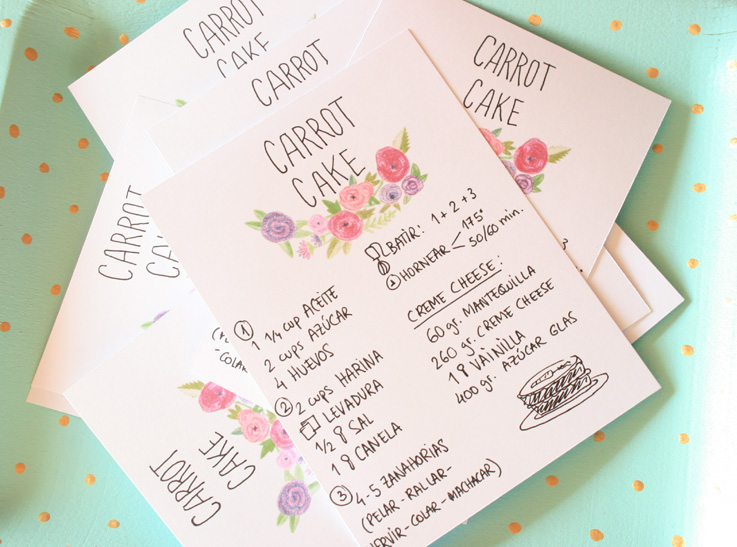 CARROT
CAKE
CARROT
CARROT
CAKE
CARROT
CARROT
CAKE
① 1 1/4 cup ACEITE
2 cups AZÚCAR
4 HUEVOS
② 2 cups HARINA
LEVADURA
1/2 SAL
1 CANELA
③ 4-5 ZANAHORIAS
(PELAR-RALLAR-
HERVIR-COLAR-MACHACAR)
BATIR: 1+2+3
HORNEAR 175º
50/60 min.
CREME CHEESE:
60 gr. MANTEQUILLA
260 gr. CREME CHEESE
1 VAINILLA
400 gr. AZÚCAR GLAS
CARROT
CAKE